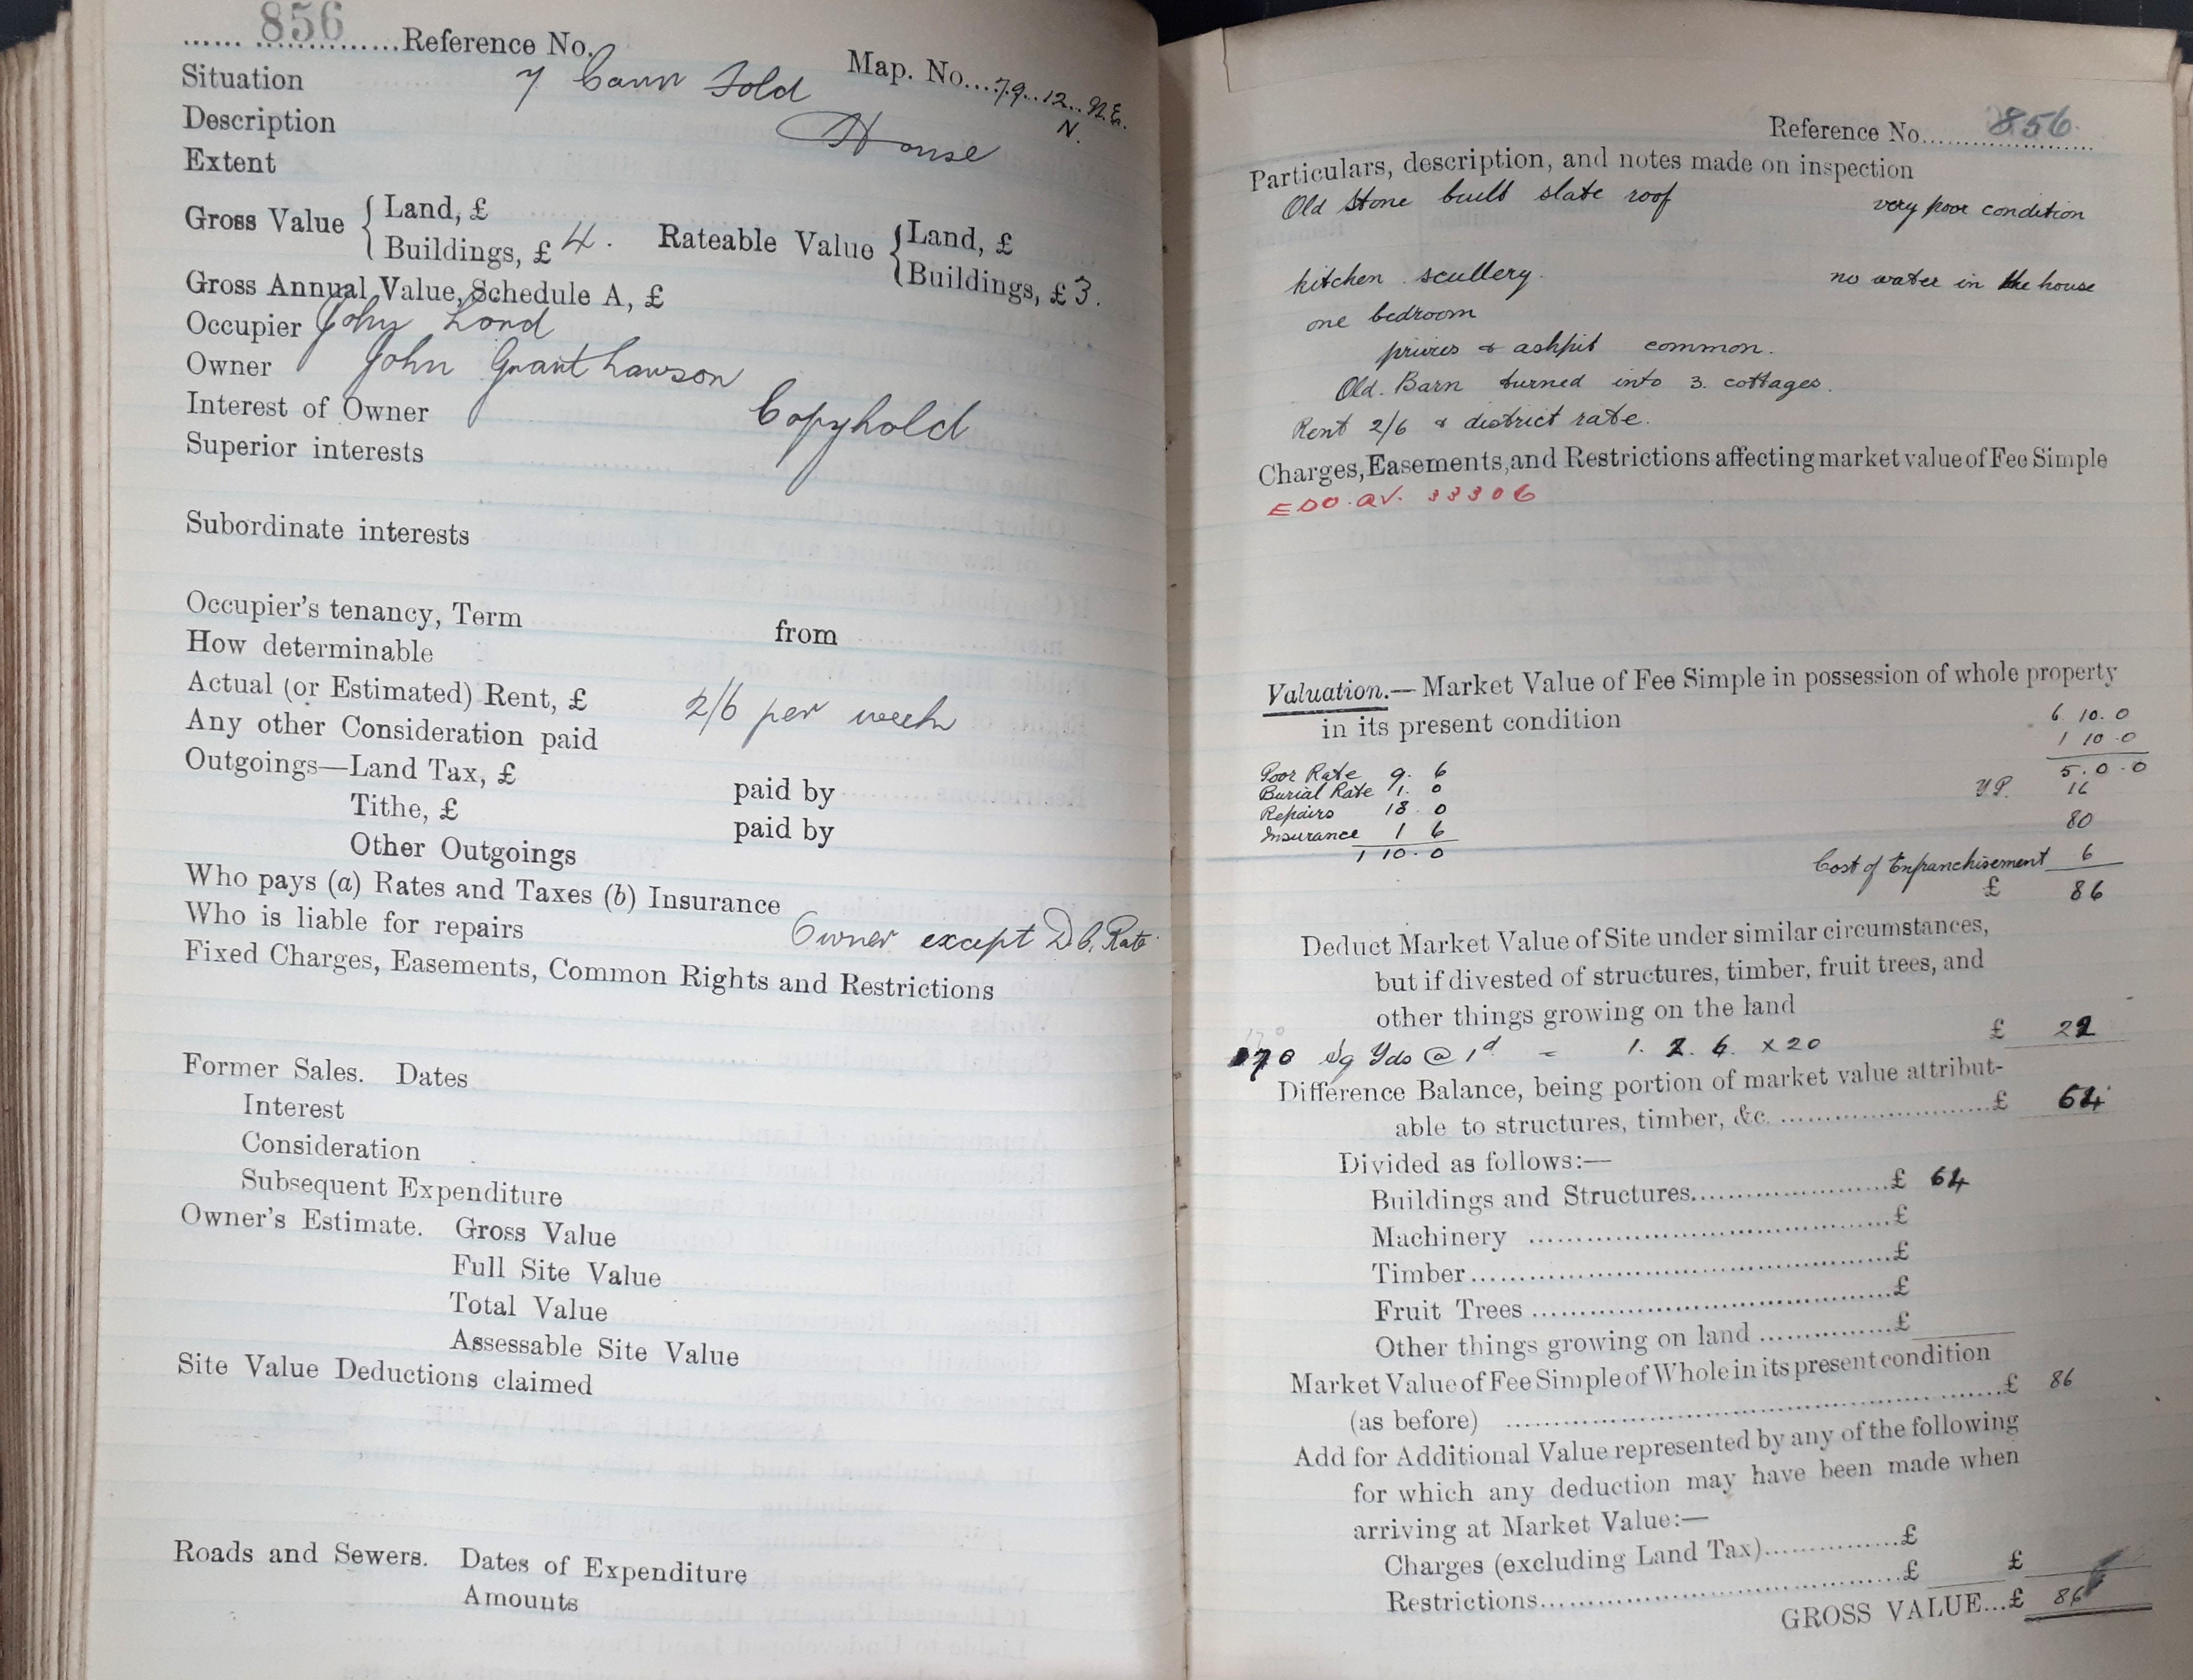 856
...... ..............Reference No.
Map. No....79..12..N.E.
N.
Situation 7 Barn Fold
Description House
Extent
Gross Value { Land, £
Buildings, £ 4. Rateable Value { Land, £
Buildings, £ 3.
Gross Annual Value, Schedule A, £
Occupier John Lord
Owner John Grant Lawson
Interest of Owner Copyhold
Superior interests
Subordinate interests
Occupier's tenancy, Term from
How determinable
Actual (or Estimated) Rent, £ 2/6 per week
Any other Consideration paid
Outgoings—Land Tax, £ paid by
Tithe, £ paid by
Other Outgoings
Who pays (a) Rates and Taxes (b) Insurance
Who is liable for repairs Owner except D.C. Rate
Fixed Charges, Easements, Common Rights and Restrictions
Former Sales. Dates
Interest
Consideration
Subsequent Expenditure
Owner's Estimate. Gross Value
Full Site Value
Total Value
Assessable Site Value
Site Value Deductions claimed
Roads and Sewers. Dates of Expenditure
Amounts
Reference No. 856.
Particulars, description, and notes made on inspection
Old Stone built slate roof very poor condition
kitchen. scullery. no water in the house
one bedroom
privies & ashpit common.
Old. Barn turned into 3. cottages.
Rent 2/6 & district rate.
Charges, Easements, and Restrictions affecting market value of Fee Simple
EDO. QV. 33306
Valuation.— Market Value of Fee Simple in possession of whole property
in its present condition
6 10. 0
1 10. 0
5. 0. 0
Y.P. 16
80
Poor Rate 9. 6
Burial Rate 1. 0
Repairs 18. 0
Insurance 1 6
1 10. 0
Cost of Enfranchisement 6
£ 86
Deduct Market Value of Site under similar circumstances,
but if divested of structures, timber, fruit trees, and
other things growing on the land £ 22
Sq Yds @ 1d = 1. 2. 6. x 20
Difference Balance, being portion of market value attribut-
able to structures, timber, &c. ........................£ 64
Divided as follows:—
Buildings and Structures......................£ 64
Machinery ........................................£
Timber..............................................£
Fruit Trees ......................................£
Other things growing on land ...............£
Market Value of Fee Simple of Whole in its present condition
(as before) ........................................................£ 86
Add for Additional Value represented by any of the following
for which any deduction may have been made when
arriving at Market Value:—
Charges (excluding Land Tax)................£
Restrictions........................................£ £
GROSS VALUE...£ 86